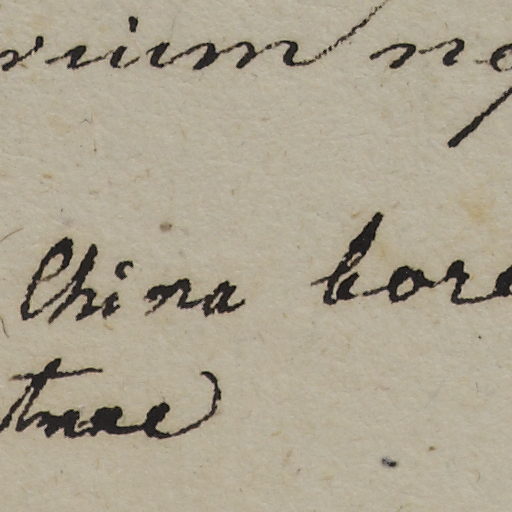 rium ng
China bore
tnae